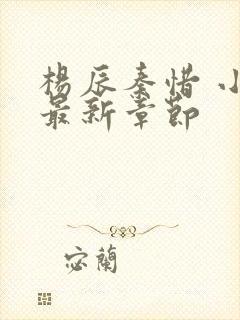 楊辰秦惜 小
最新章節
宓蘭